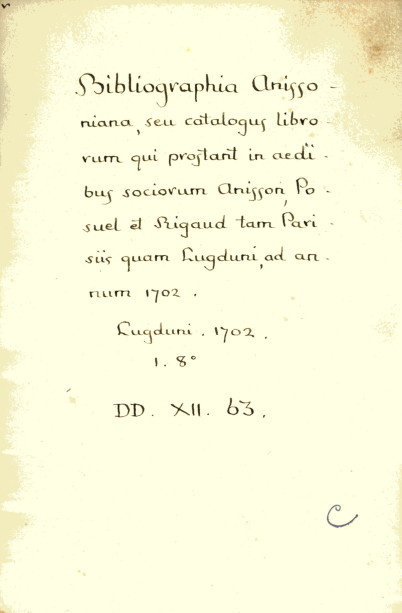 Bibliographia Anisso-
niana, seu catalogus libro-
rum qui prostant in aedi-
bus sociorum Anisson, Po-
suel et Rigaud tam Pari-
siis quam Lugduni, ad an-
num 1702.
Lugduni. 1702.
1. 8°
DD. XII. 63.
C